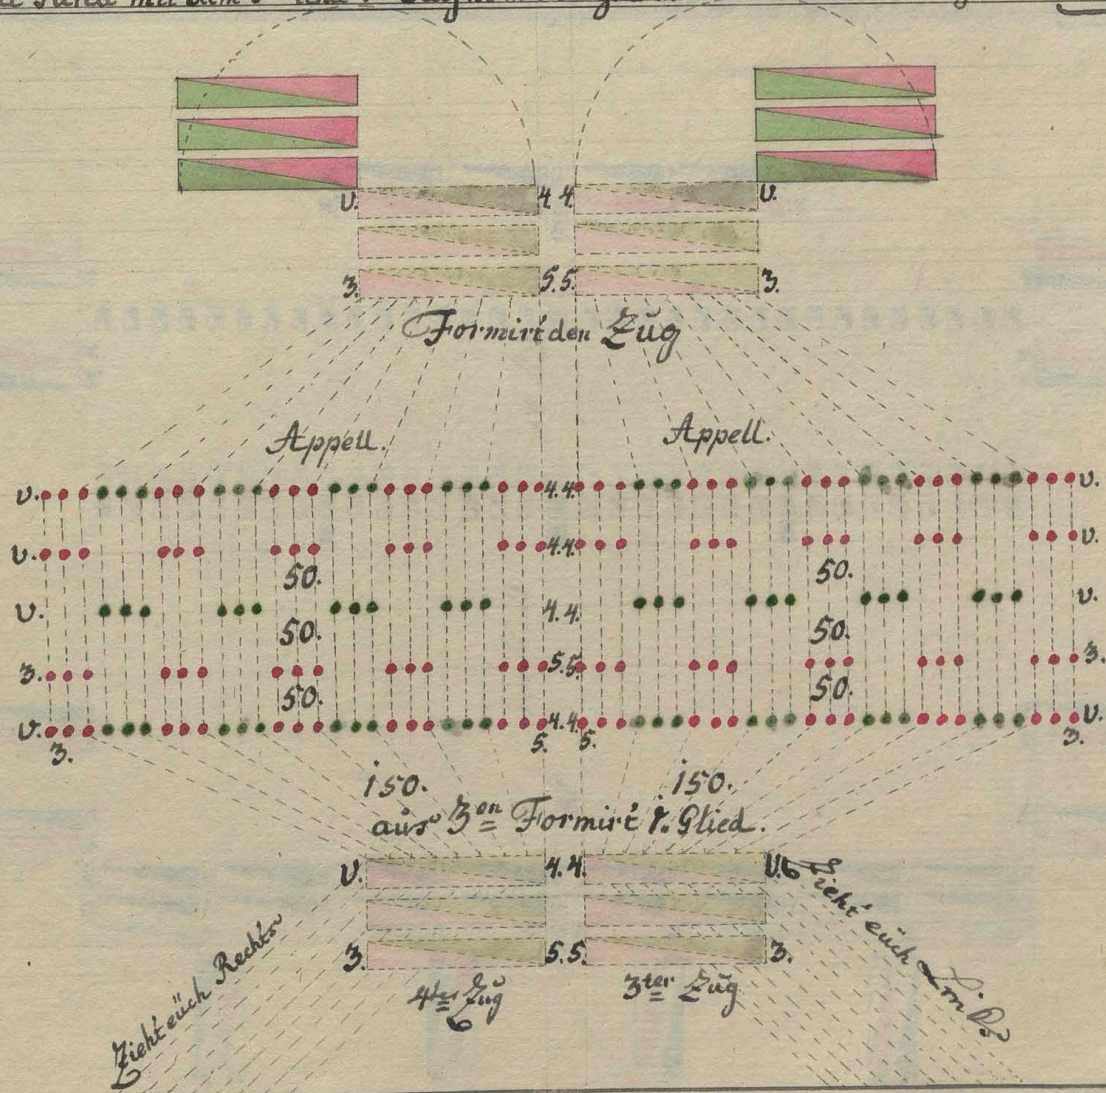 U. 4. 4. U.
3. 5. 5. 3.
Formirt den Zŭg
Appell. Appell.
U. 4. 4. U.
U. 4. 4. U.
50. 50.
U. 4. 4. U.
50. 50.
3. 5. 5. 3.
50. 50.
U. 4. 4. U.
3. 5. 5. 3.
150. 150.
aŭs 3en Formirt 1. Glied.
U. 4. 4. U.
3. 5. 5. 3.
4ter Zŭg 3ter Zŭg
Zieht eŭch Rechts
Zieht eŭch Links